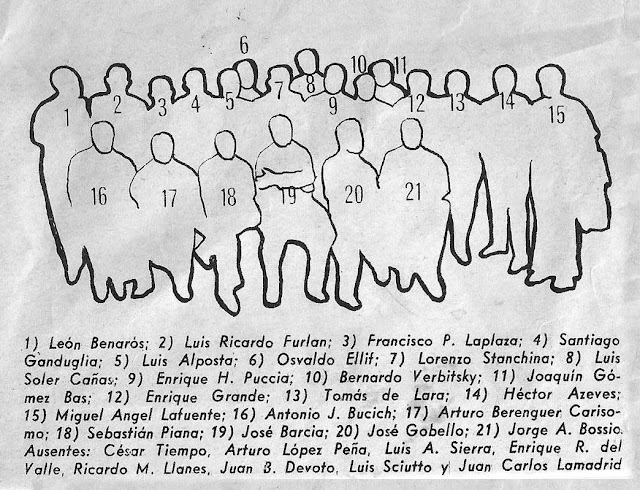 6
10
11
1
2
3
4
5
7
8
9
12
13
14
15
16
17
18
19
20
21
1) León Benarós; 2) Luis Ricardo Furlan; 3) Francisco P. Laplaza; 4) Santiago
Ganduglia; 5) Luis Alposta; 6) Osvaldo Ellif; 7) Lorenzo Stanchina; 8) Luis
Soler Cañas; 9) Enrique H. Puccia; 10) Bernardo Verbitsky; 11) Joaquín Gó-
mez Bas; 12) Enrique Grande; 13) Tomás de Lara; 14) Héctor Azeves;
15) Miguel Angel Lafuente; 16) Antonio J. Bucich; 17) Arturo Berenguer Cariso-
mo; 18) Sebastián Piana; 19) José Barcia; 20) José Gobello; 21) Jorge A. Bossio.
Ausentes: César Tiempo, Arturo López Peña, Luis A. Sierra, Enrique R. del
Valle, Ricardo M. Llanes, Juan B. Devoto, Luis Sciutto y Juan Carlos Lamadrid